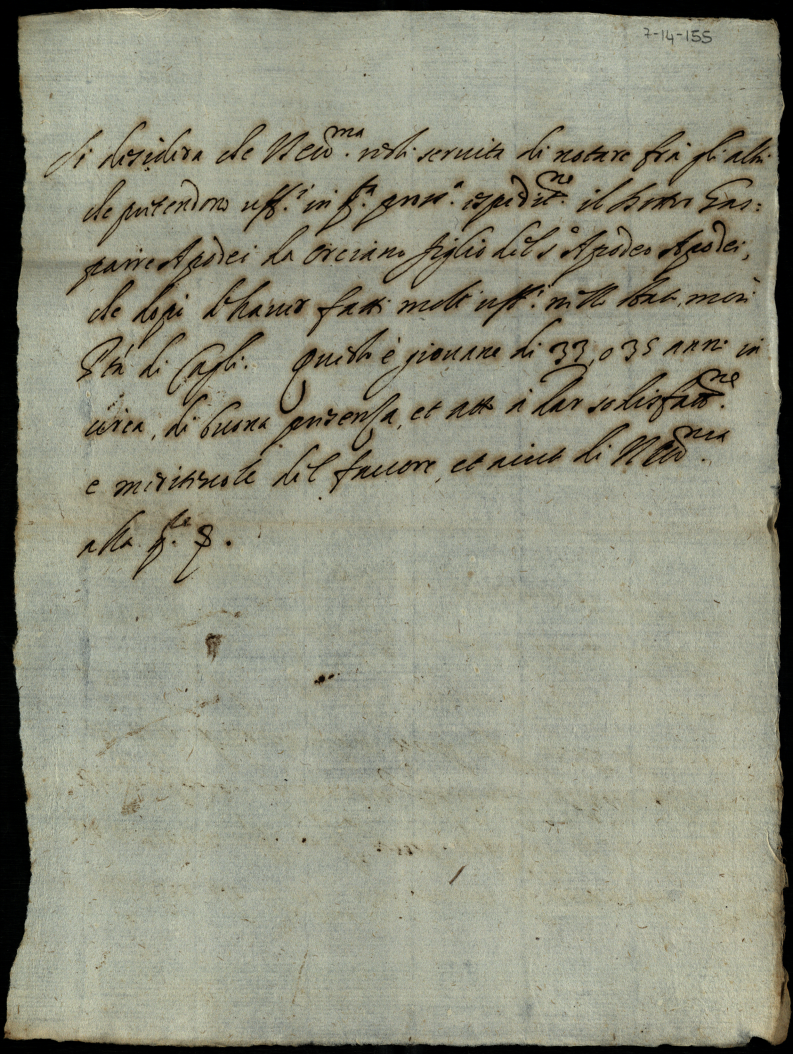 7-14-155
Si desidera che V. Ecc.ma resti servita di notare frà gli altri
che pretendono uff.i in q.sta pross.a espedit.ne il Dottor Gas:
parre Apodei da Orciano figlio del s.r Apodeo Apodei,
che dopò d'haver fatti molti uff.i nello Stato, morì
P.tà di Cagli. Questi è giovane di 33, o 35 anni in
circa, di buona presenza, et atto à dar sodisfatt.ne
e meritevole del favore, et aiuto di V. Ecc.ma
alla q.le